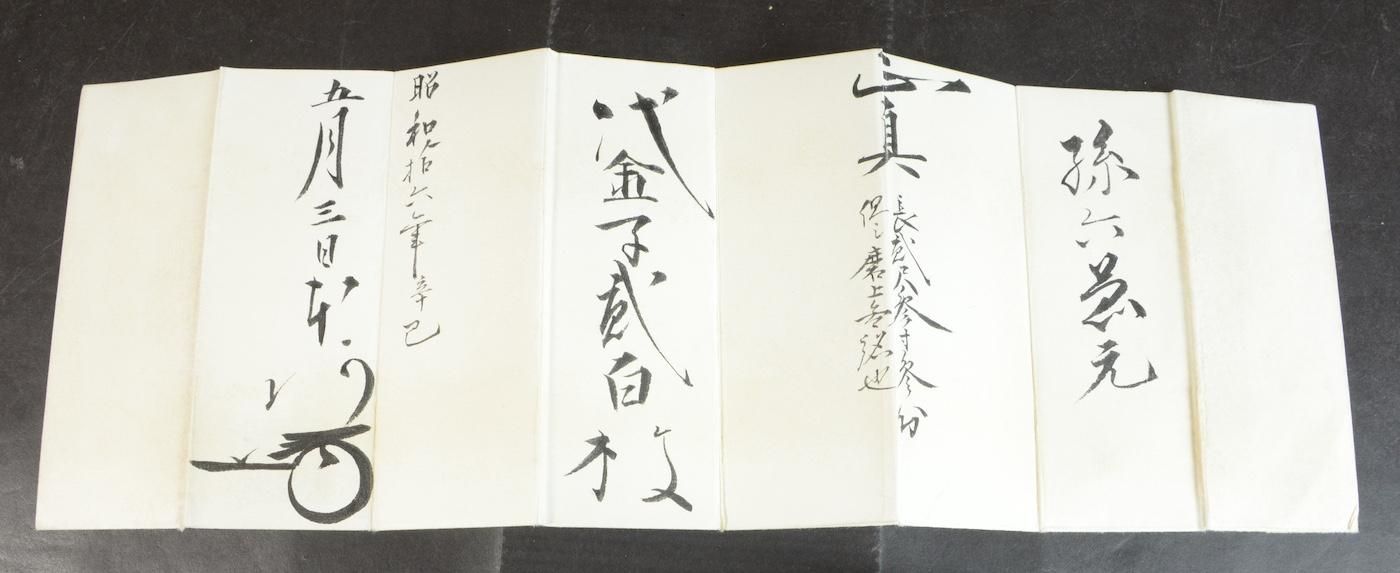 孫六兼元
正真
長貳尺参寸参分
但シ磨上無銘也
代金子貳百枚
昭和拾六年辛巳
五月三日 本阿